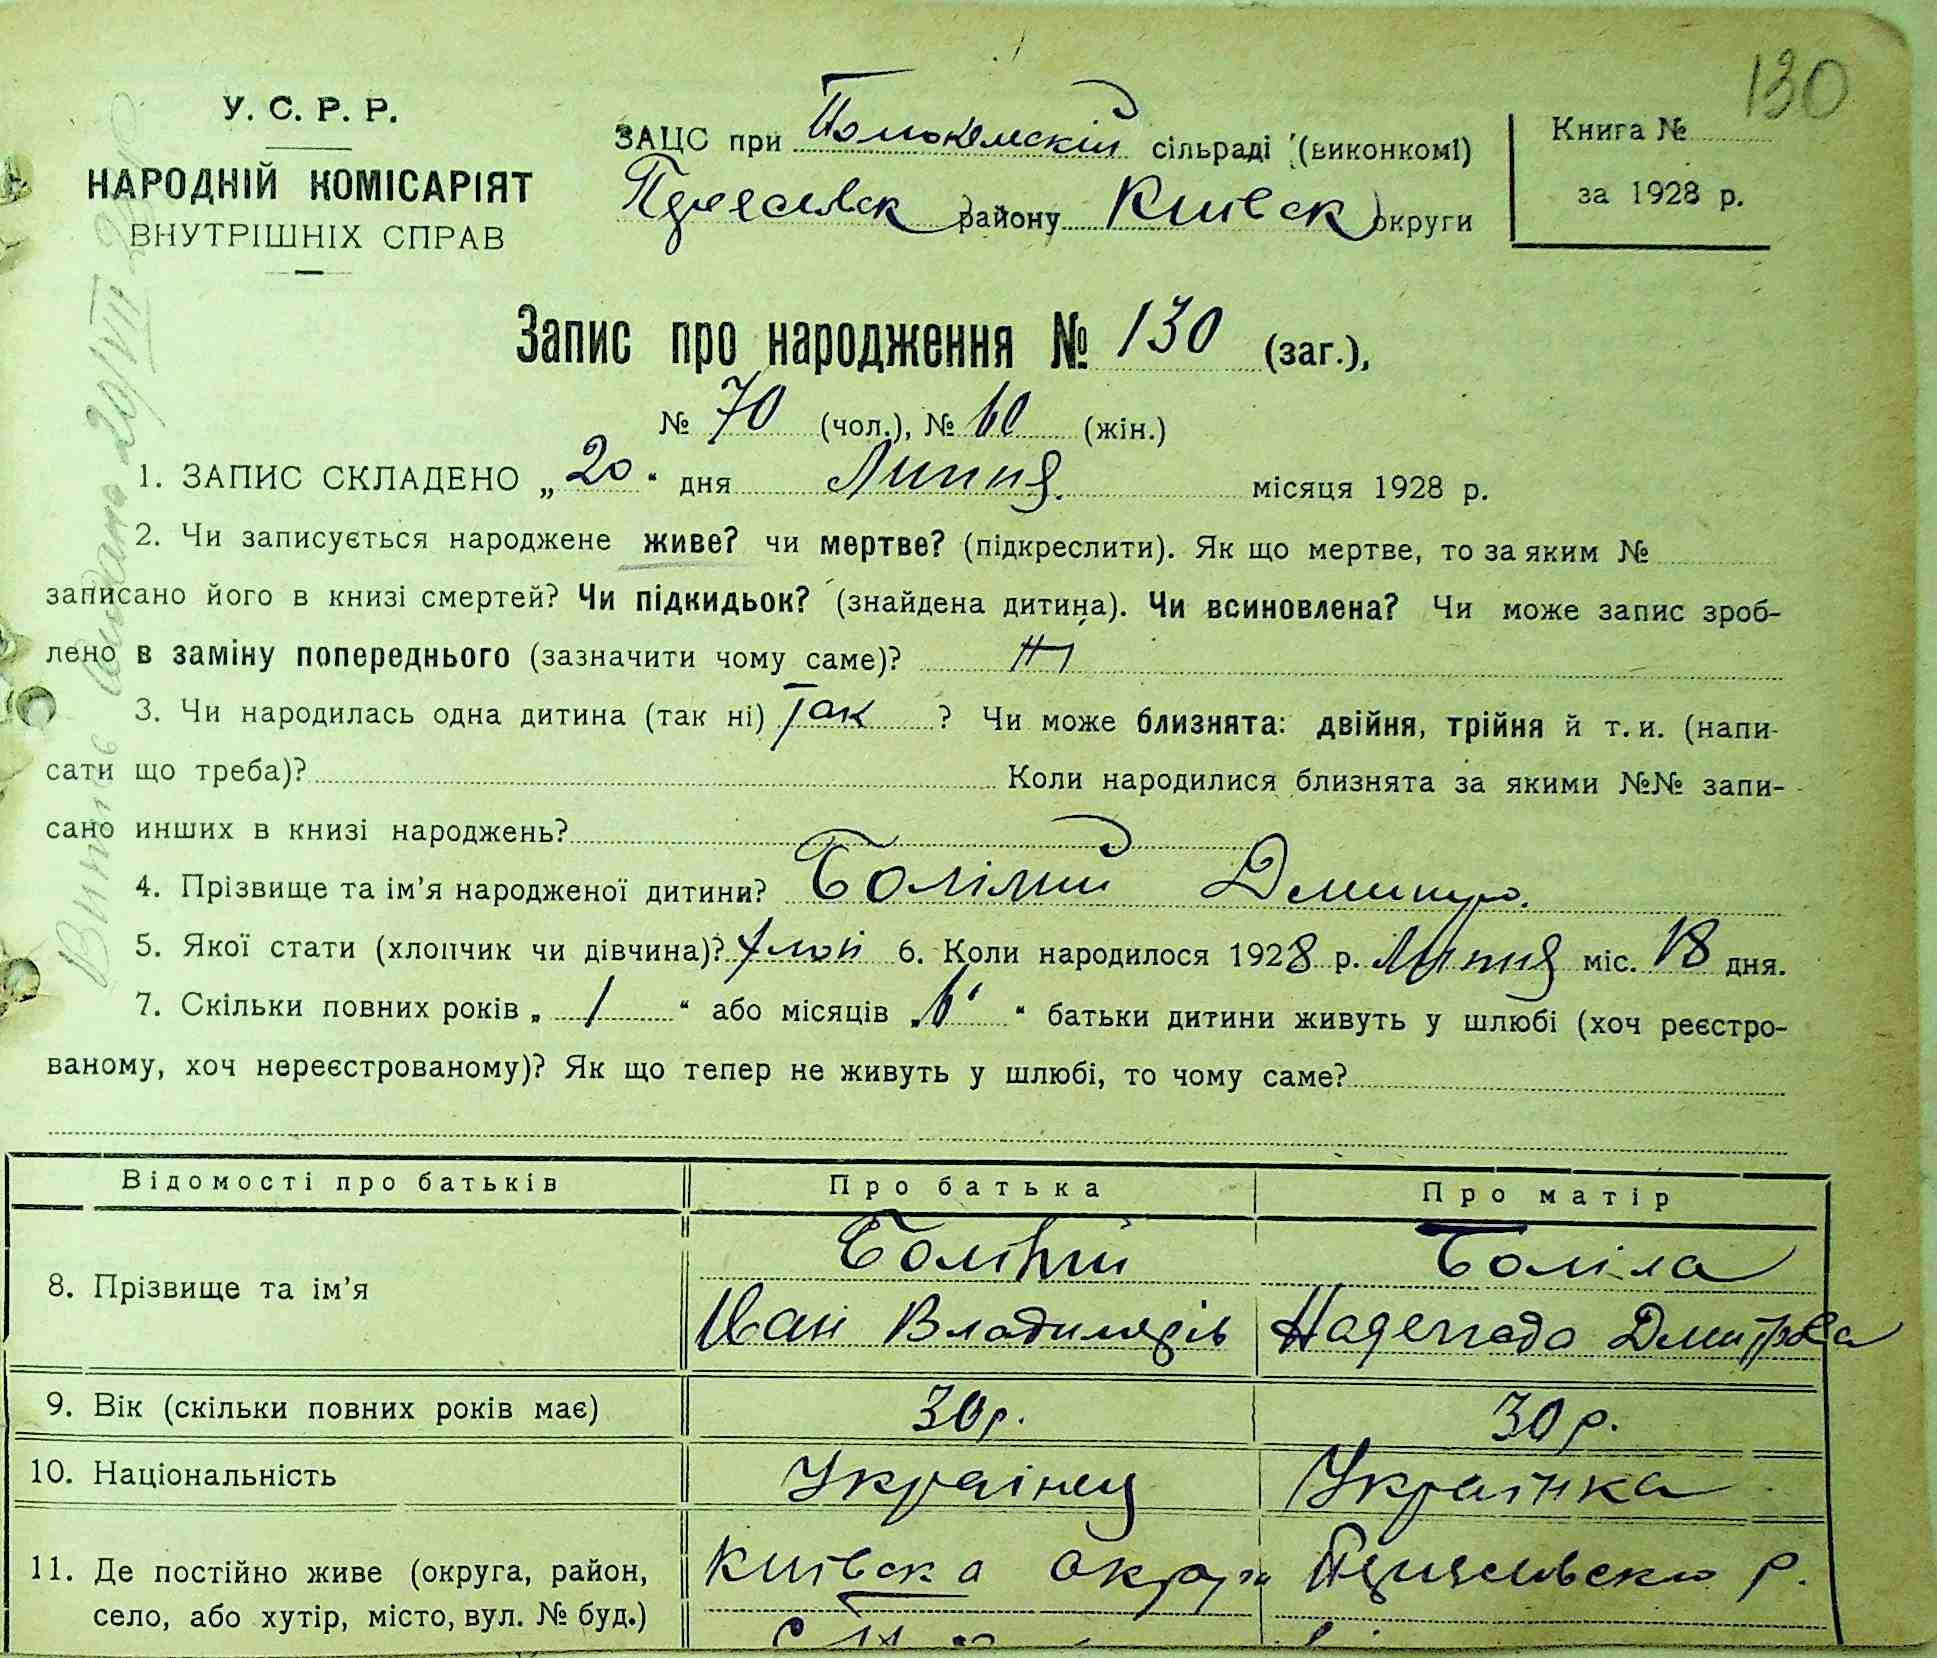 130
У. С. Р. Р.
НАРОДНІЙ КОМІСАРІЯТ
ВНУТРІШНІХ СПРАВ
ЗАЦС при сільраді (виконкомі)
району Київск округи
Книга №
за 1928 р.
Запис про народження № 130 (заг.),
№ 70 (чол.), № 60 (жін.)
1. ЗАПИС СКЛАДЕНО „20“ дня Липня місяця 1928 р.
2. Чи записується народжене живе? чи мертве? (підкреслити). Як що мертве, то за яким №
записано його в книзі смертей? Чи підкидьок? (знайдена дитина). Чи всиновлена? Чи може запис зроб-
лено в заміну попереднього (зазначити чому саме)? Ні
3. Чи народилась одна дитина (так ні) Так ? Чи може близнята: двійня, трійня й т. и. (напи-
сати що треба)? Коли народилися близнята за якими №№ запи-
сано инших в книзі народжень?
4. Прізвище та ім’я народженої дитини? Болілий Дмитро.
5. Якої стати (хлопчик чи дівчина)? 6. Коли народилося 1928 р. Липня міс. 18 дня.
7. Скільки повних років „ 1 “ або місяців „ 6 “ батьки дитини живуть у шлюбі (хоч реєстро-
ваному, хоч нереєстрованому)? Як що тепер не живуть у шлюбі, то чому саме?
Відомості про батьків Про батька Про матір
8. Прізвище та ім’я
Болілий Боліла
Іван Надегеда
9. Вік (скільки повних років має) 30 р. 30 р.
10. Національність Украінец Украінка
11. Де постійно живе (округа, район,
село, або хутір, місто, вул. № буд.)
Київска р.